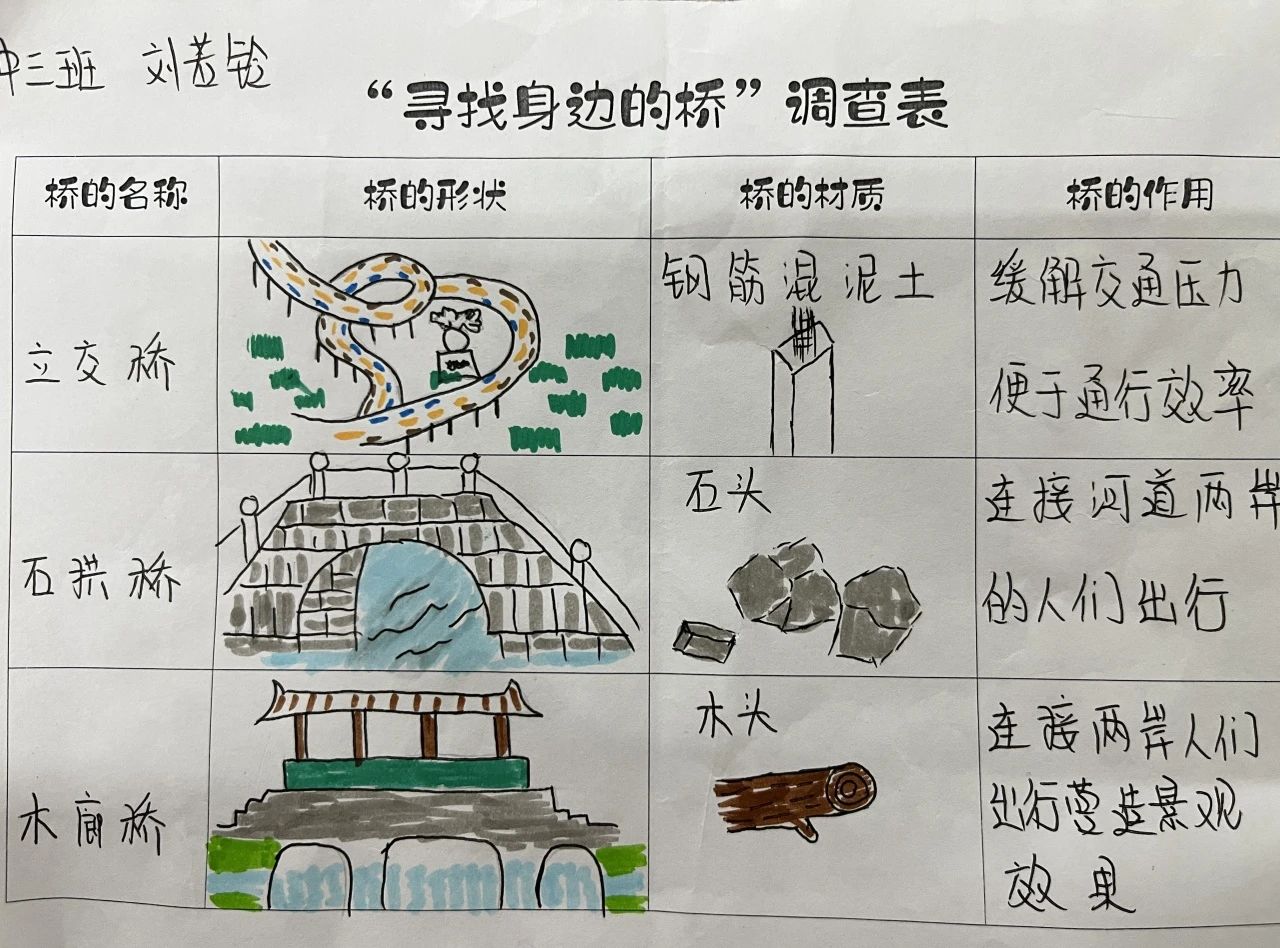 中三班 刘若铃
“寻找身边的桥”调查表
桥的名称 桥的形状 桥的材质 桥的作用
立交桥
钢筋混泥土
缓解交通压力
便于通行效率
石拱桥
石头
连接河道两岸
的人们出行
木廊桥
木头
连接两岸人们
出行营造景观
效果